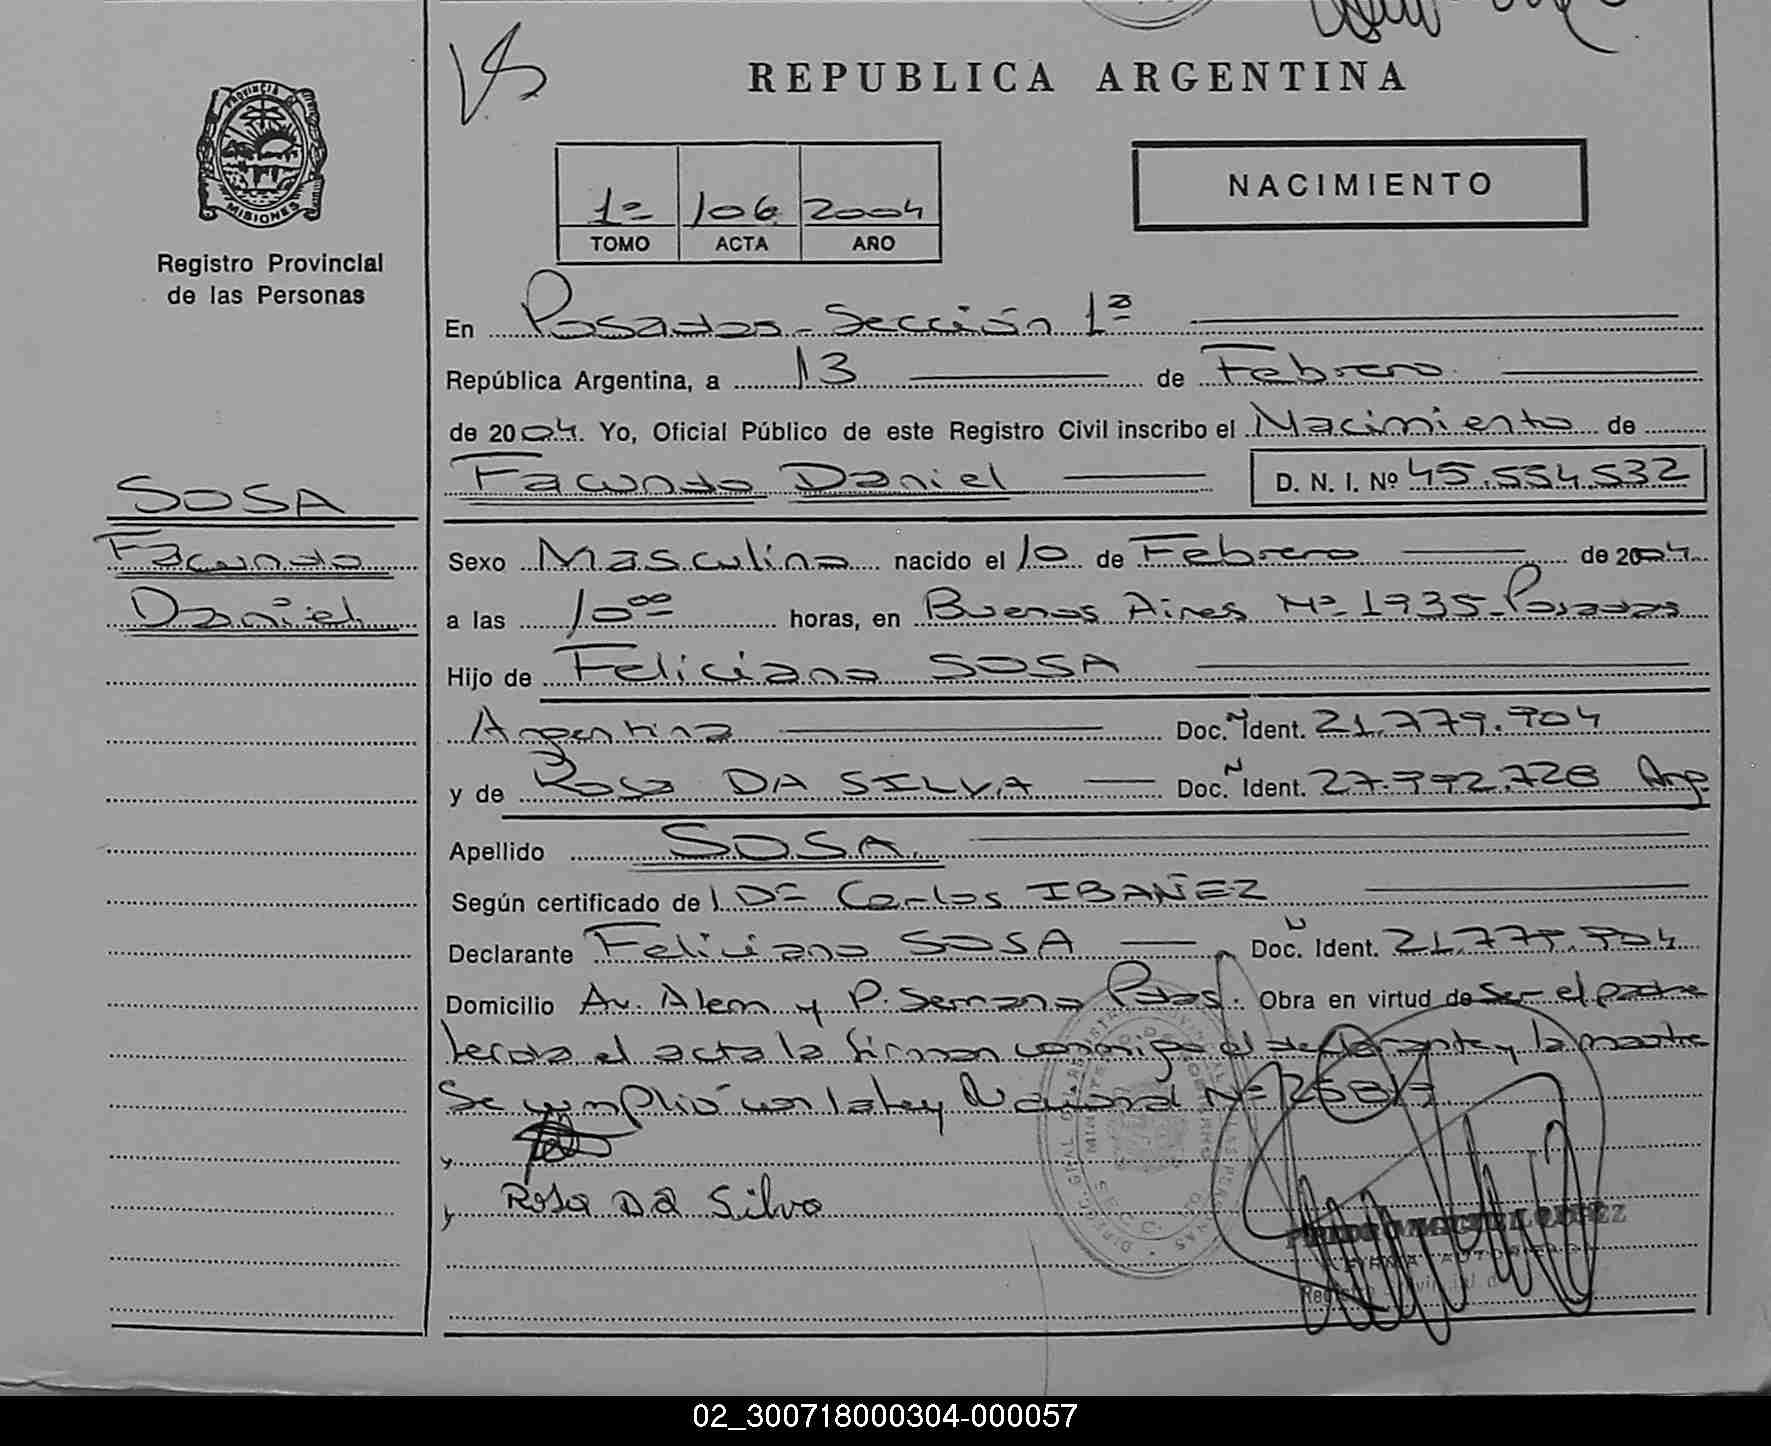 REPUBLICA ARGENTINA
PROVINCIA DE
MISIONES
Registro Provincial
de las Personas
1º 106 2004
TOMO ACTA AÑO
NACIMIENTO
En Posadas - Sección 1ª
República Argentina, a 13 de Febrero
de 2004. Yo, Oficial Público de este Registro Civil inscribo el Nacimiento de
Facundo Daniel D. N. I. Nº 45.554.532
SOSA
Facundo
Daniel
Sexo Masculino nacido el 10 de Febrero de 2004
a las 10⁰⁰ horas, en Buenos Aires Nº 1935 - Posadas
Hijo de Feliciano SOSA
Argentina Doc. N Ident. 21.779.904
y de Rosa DA SILVA Doc. N Ident. 27.992.728 Arg.
Apellido SOSA
Según certificado de Dr Carlos IBAÑEZ
Declarante Feliciano SOSA Doc. N Ident. 21.779.904
Domicilio Av. Alem y P. Serrano Pdas. Obra en virtud de ser el padre
leída el acta la firman conmigo el declarante y la madre
Se cumplió con la ley Nacional Nº
Rosa Da Silva
02_300718000304-000057